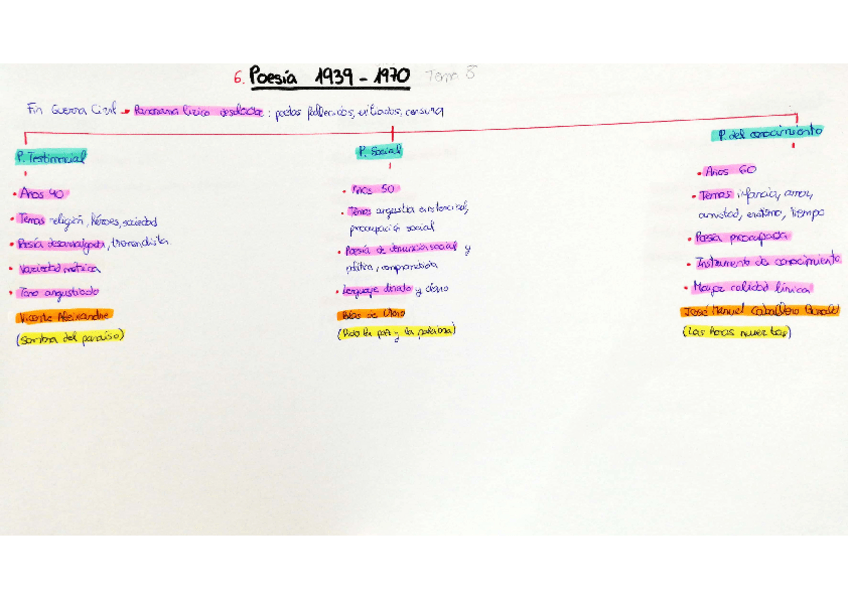 6. Poesía 1939 - 1970 Tema 5
Fin Guerra Civil → Panorama lírico desolador: poetas fallecidos, exiliados, censura
P. Testimonial
• Años 40
• Temas religión, héroes, sociedad
• Poesía desarraigada, tremendista
• Variedad métrica
• Tono angustiado
Vicente Aleixandre
(Sombra del paraíso)
P. Social
• Años 50
• Temas angustia existencial,
preocupación social
• Poesía de denuncia social y
política, comprometida
• Lenguaje directo y claro
Blas de Otero
(Pido la paz y la palabra)
P. del conocimiento
• Años 60
• Temas infancia, amor,
amistad, erotismo, tiempo
• Poesía preocupada
• Instrumento de conocimiento
• Mayor calidad lírica
José Manuel Caballero Bonald
(Las horas muertas)